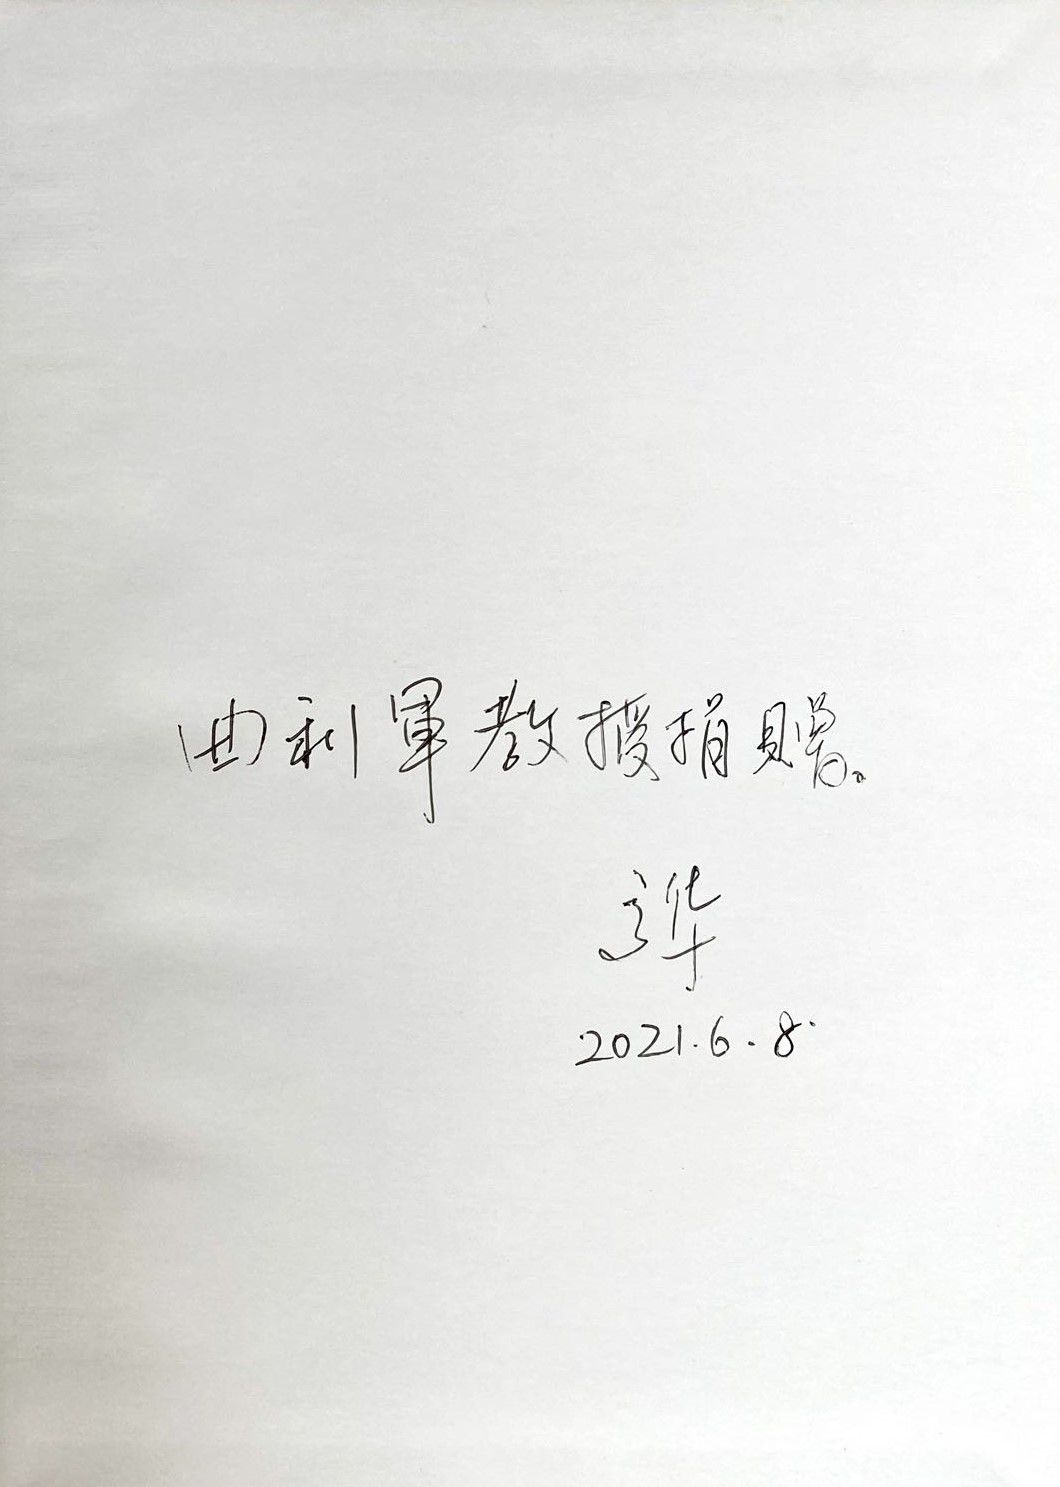 曲利軍教授捐赠。
2021.6.8.